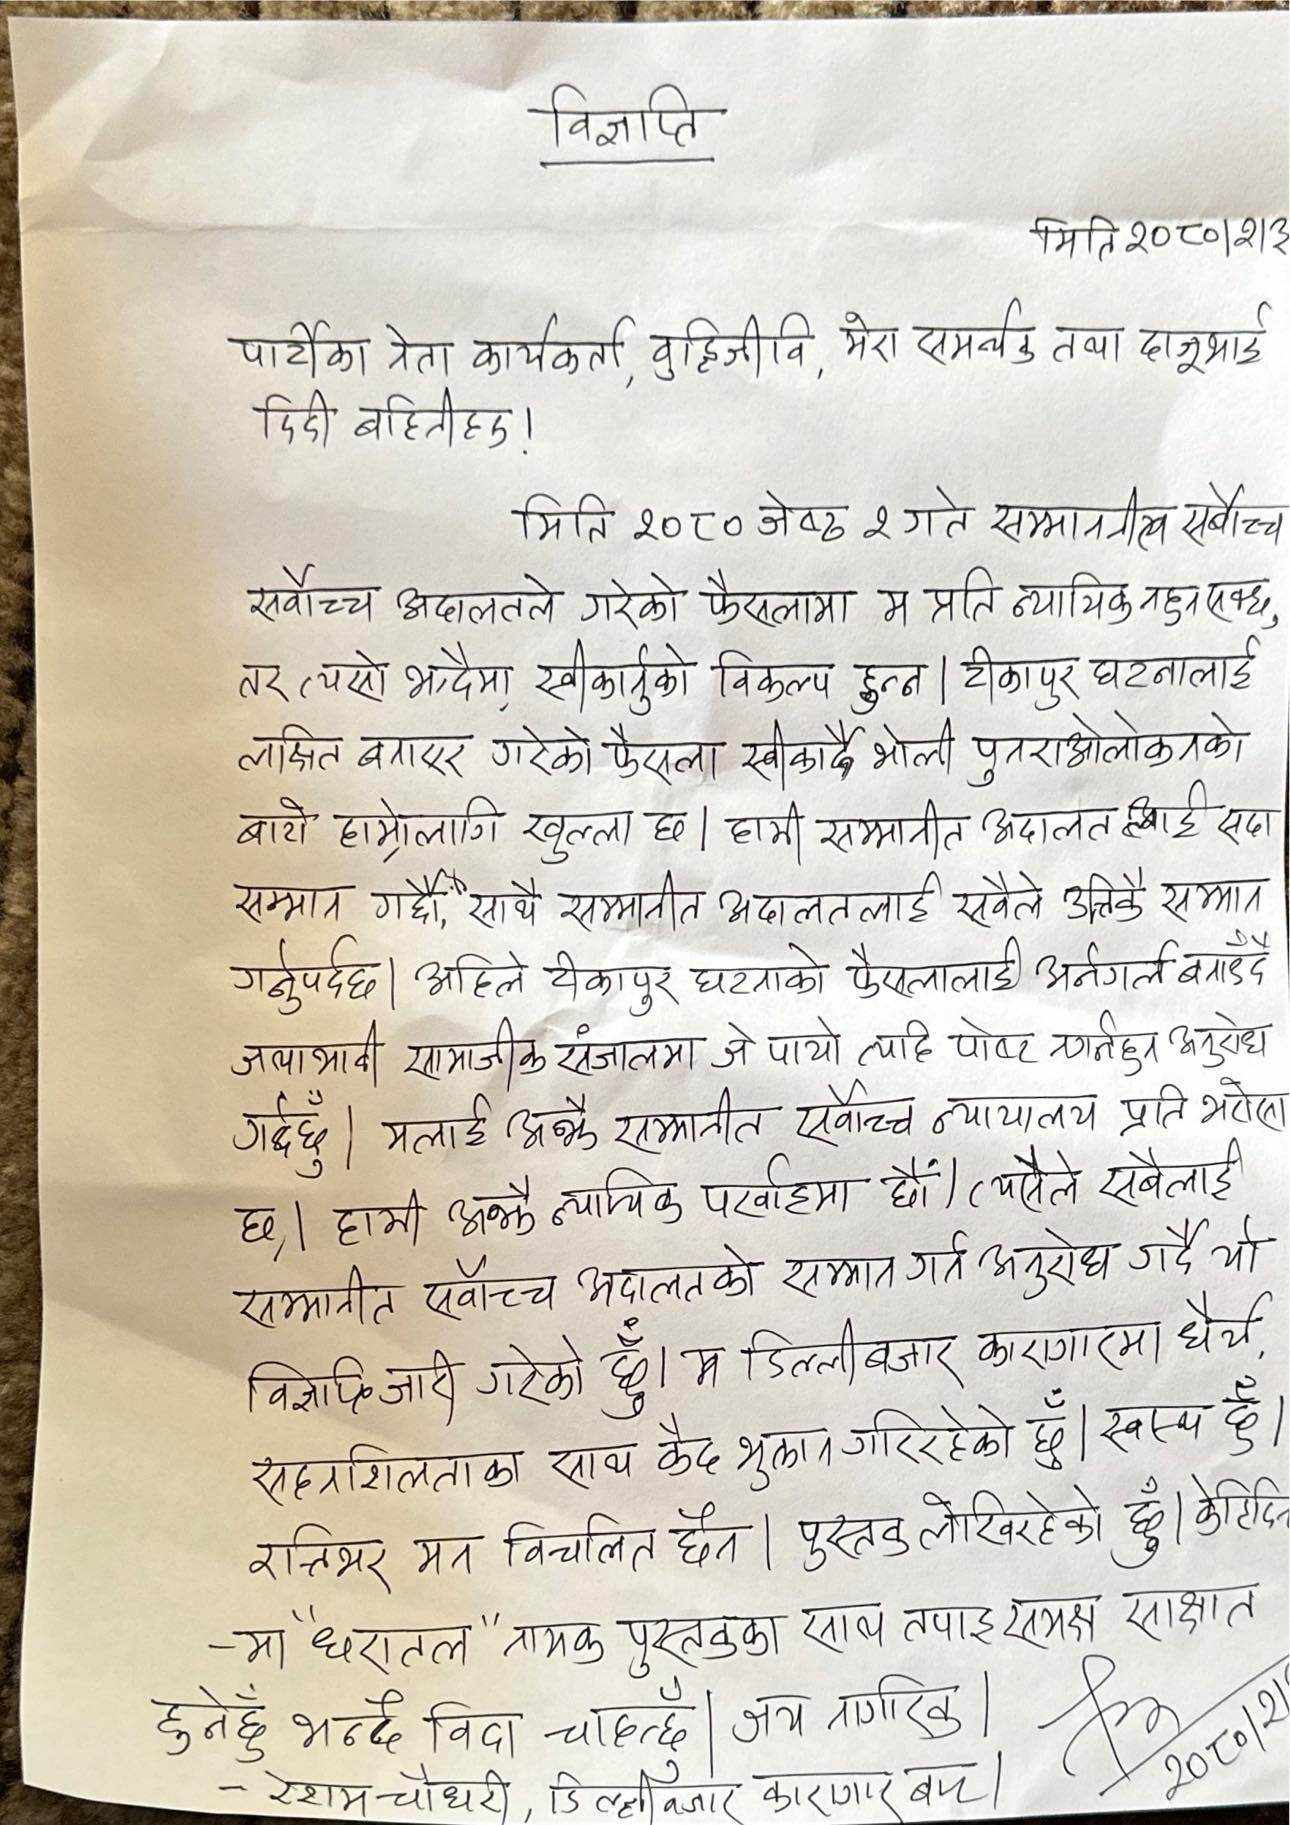 विज्ञप्ति
मिति २०८०।२।३
पार्टीका नेता कार्यकर्ता, वुद्धिजीवि, मेरा समर्थक तथा दाजूभाई
दिदी बहिनीहरु!
मिति २०८० जेष्ठ २ गते सम्माननीय सर्वोच्च
सर्वोच्च अदालतले गरेको फैसलामा म प्रति न्यायिक नहुन सक्छ,
तर त्यसो भन्दैमा स्वीकार्नुको विकल्प हुन्न। टीकापुर घटनालाई
लक्षित बनाएर गरेको फैसला स्वीकार्दै भोली पुनराओलोकनको
बाटो हाम्रोलागि खुल्ला छ। हामी सम्मानीत अदालत लाई सदा
सम्मान गर्दछौं, साथै सम्मानीत अदालतलाई सवैले उत्तिकै सम्मान
गर्नुपर्दछ। अहिले टीकापुर घटनाको फैसलालाई अर्नगर्ल बनाउँदै
जथाभावी सामाजीक संजालमा जे पायो त्यहि पोष्ट नगर्नहुन अनुरोध
गर्दछुँ। मलाई अझै सम्मानीत सर्वोच्च न्यायालय प्रति भरोसा
छ,। हामी अझै न्यायिक पर्खाइमा छौं। त्यसैले सबैलाई
सम्मानीत सर्वोच्च अदालतको सम्मान गर्न अनुरोध गर्दै यो
विज्ञप्ति जारी गरेको छुँ। म डिल्लीबजार कारागारमा धैर्य,
सहनशिलताका साथ कैद भुक्तान गरिरहेको छुँ। स्वस्थ छुँ।
रत्तिभर मन विचलित छैन। पुस्तक लेखिरहेको छुँ। केहिदिन
-मा "धरातल" नामक पुस्तकका साथ तपाइ समक्ष साक्षात
हुनेछुँ भन्दै विदा चाहन्छुँ। जय नागरिक।
- रेशम चौधरी, डिल्लीबजार कारागार बाट।
२०८०।२।